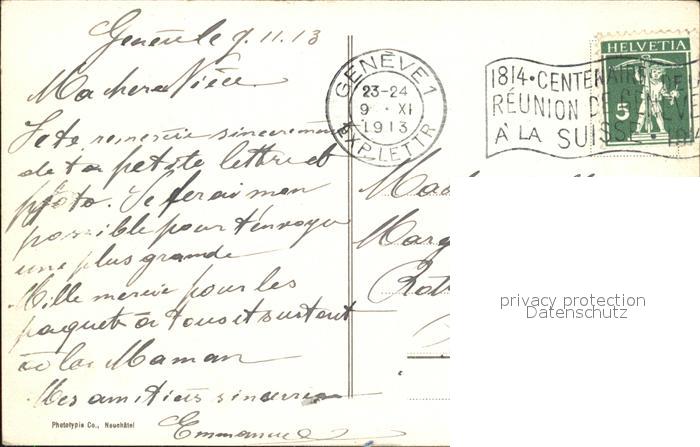 Genève le 9.11.13
Ma chère Nièce
Je te remercie sincèrement
de ta petite lettre et
photo. Je ferai mon
possible pour t'envoyer
une plus grande
Mille mercie pour les
paquet à tous et surtout
à la Maman
Mes amitiés sincères
Emmanuel
Phototypie Co., Neuchâtel
GENÈVE 1
23-24
9 · XI
1913
EXP. LETTR
1814 · CENTENAIRE DE LA
RÉUNION DE GENÈVE
À LA SUISSE
HELVETIA
5
Marg
privacy protection
Datenschutz